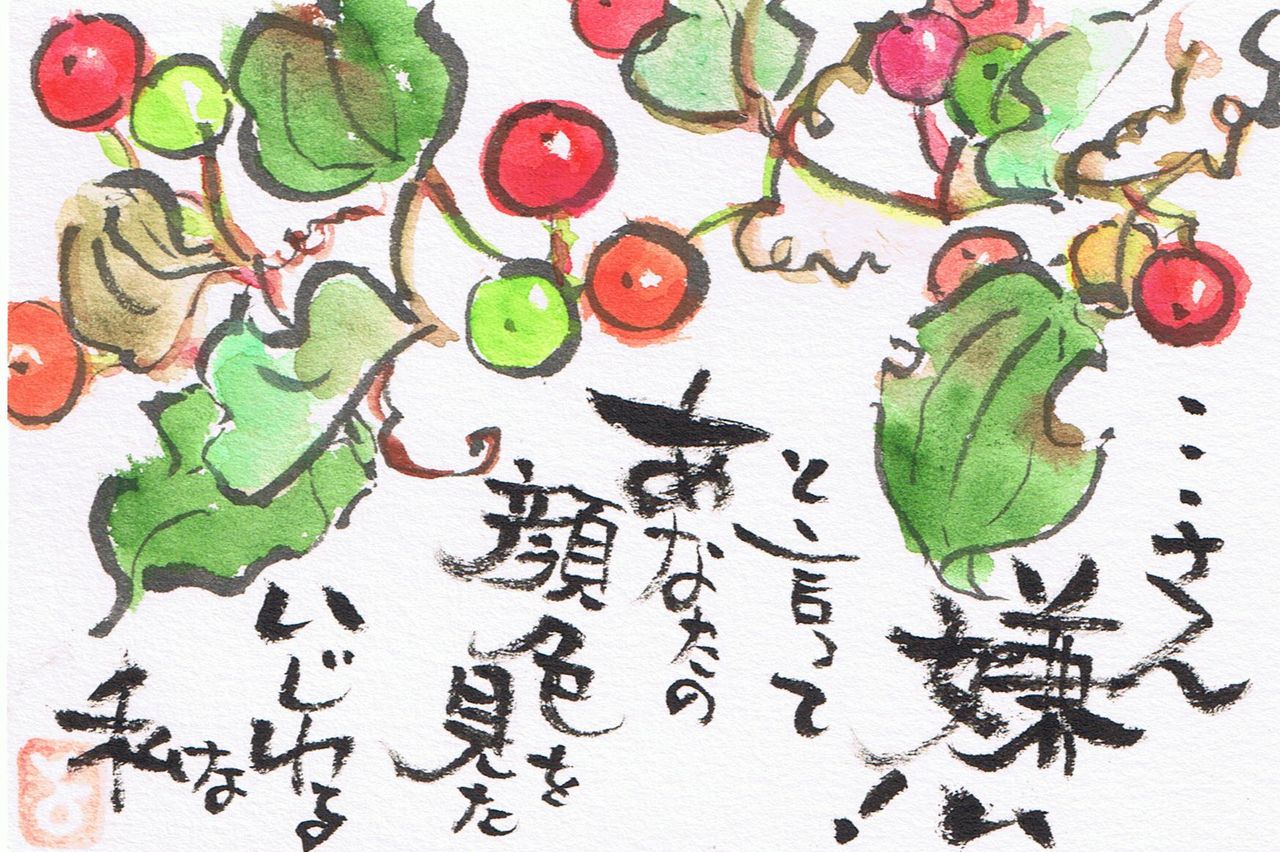 …さん
嫌い！
と言って
あなたの
顔色を
見た
いじわる
な
私